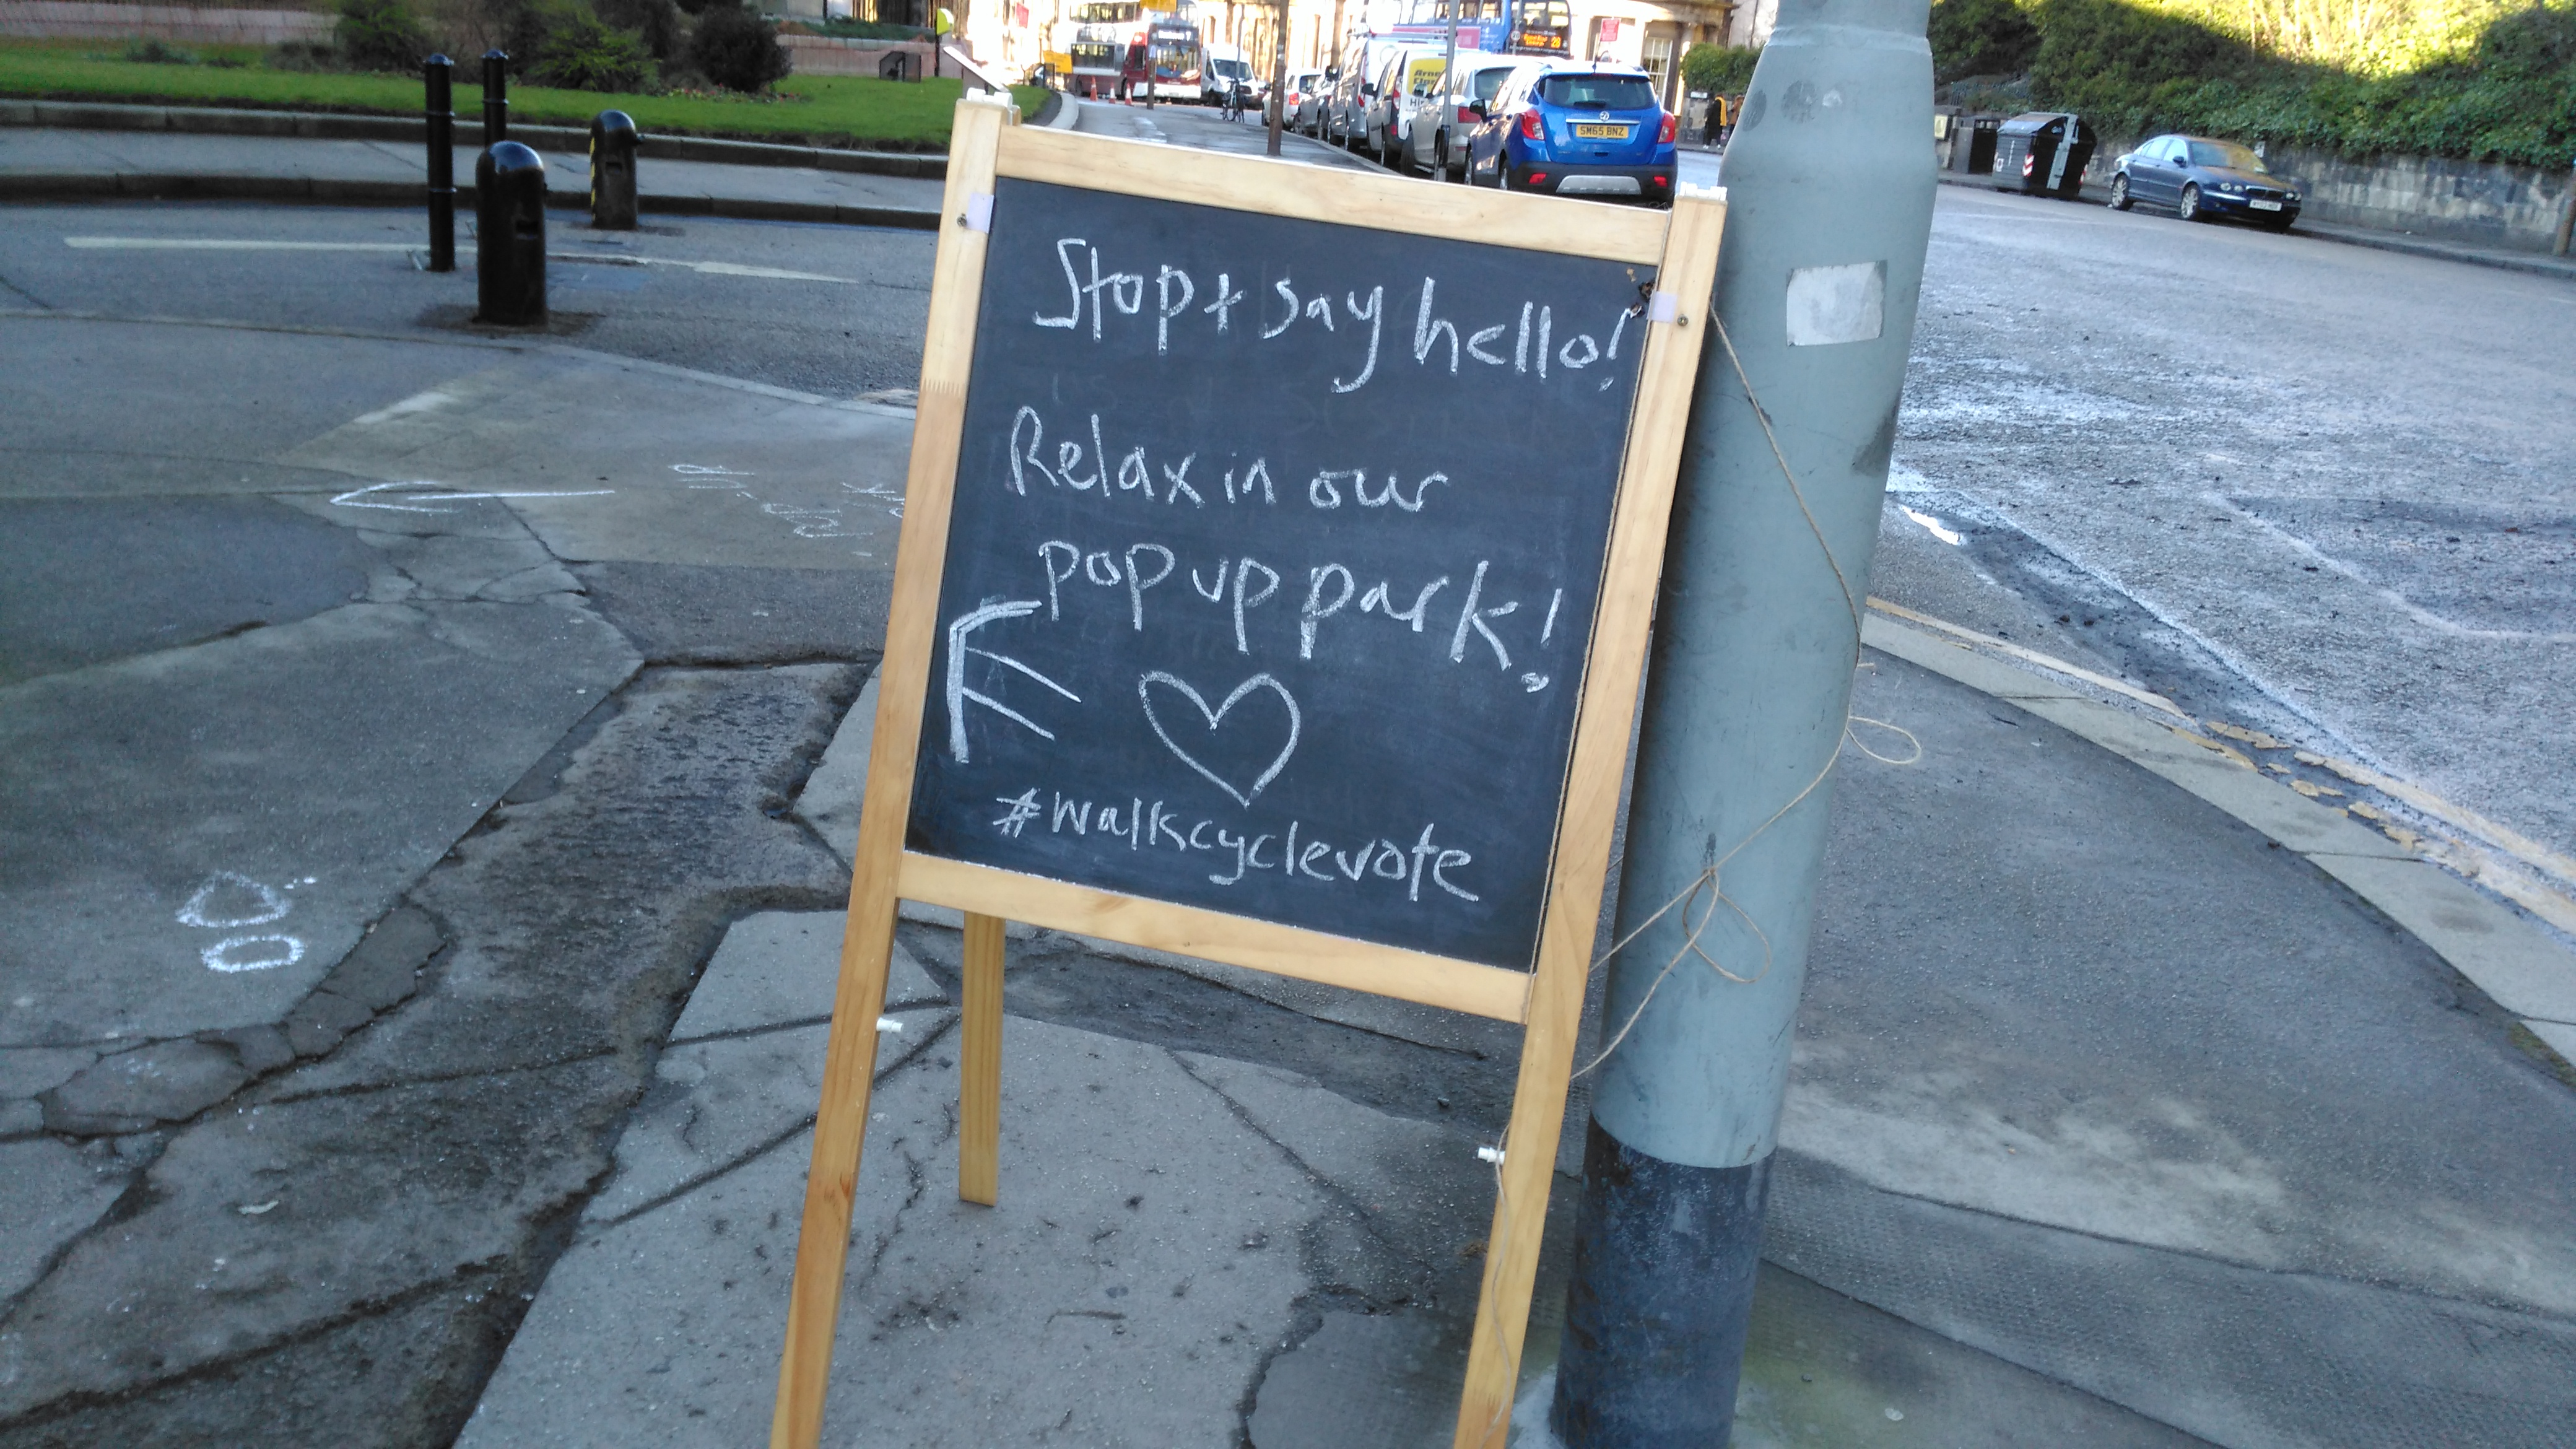 Stop + say hello!
Relax in our
pop up park!
#walkcyclevote
SM65 BNZ
28